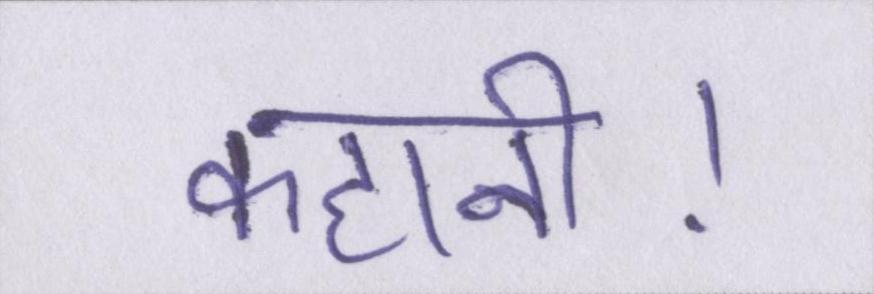 कहानी !